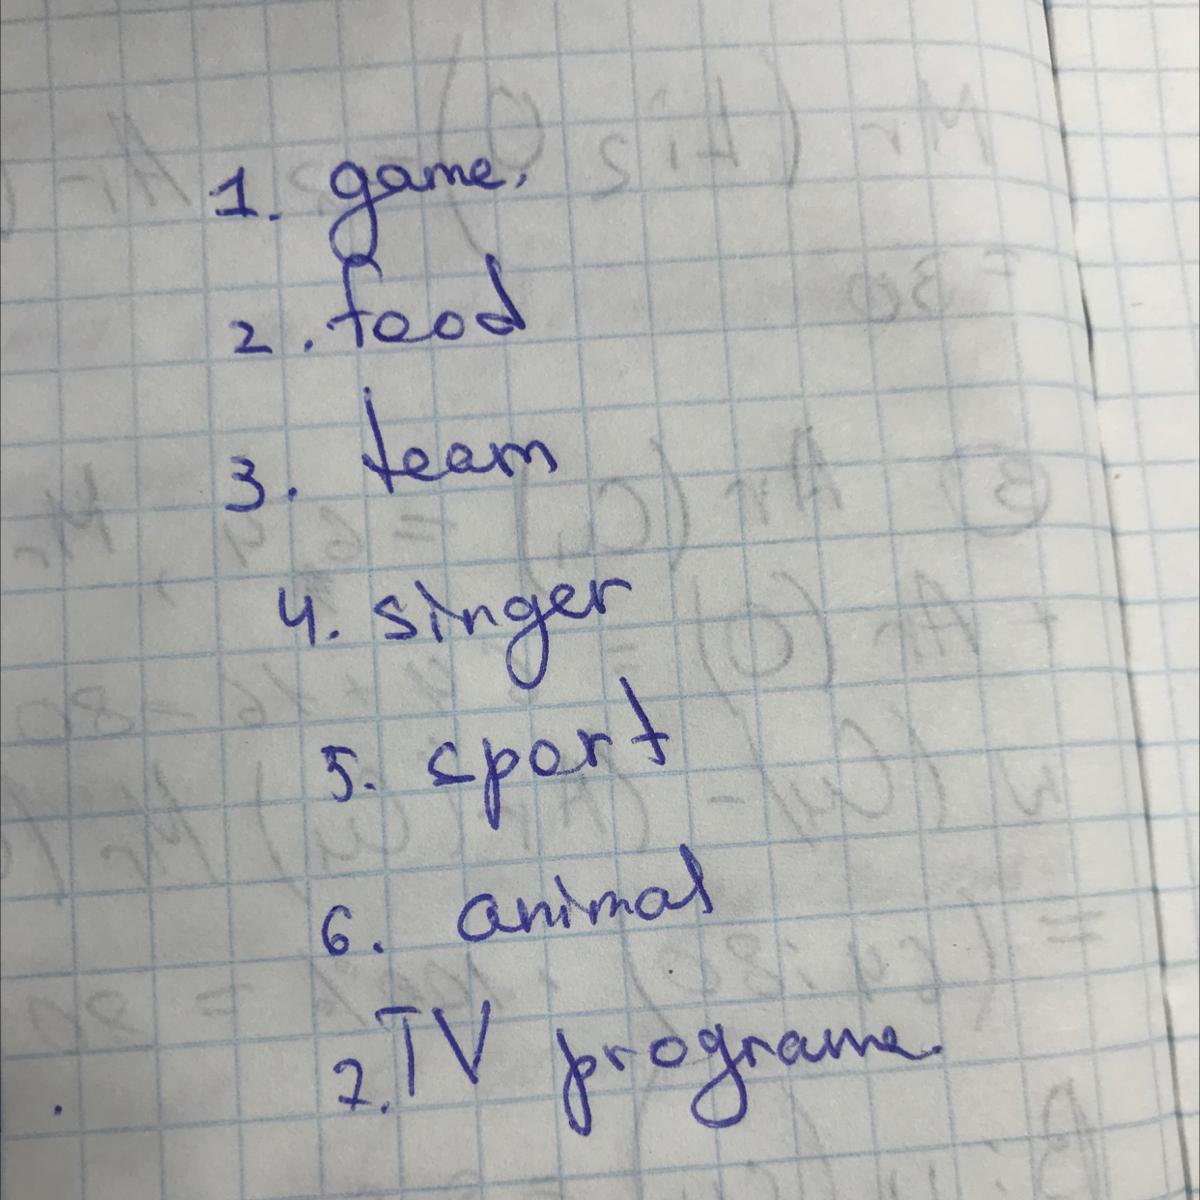 1. game,
2. food
3. team
4. singer
5. sport
6. animal
7. TV programe.